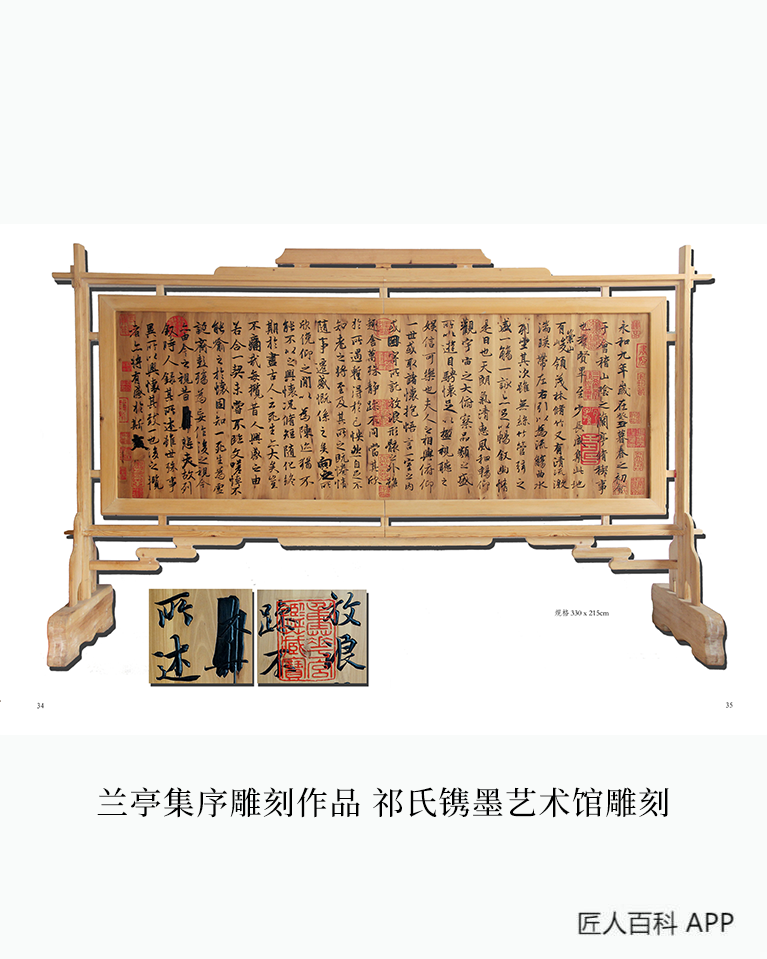 永和九年歲在癸丑暮春之初會
于會稽山陰之蘭亭脩禊事
也羣賢畢至少長咸集此地
有崇山峻領茂林脩竹又有清流激
湍暎帶左右引以為流觴曲水
列坐其次雖無絲竹管弦之
盛一觴一詠亦足以暢叙幽情
是日也天朗氣清惠風和暢仰
觀宇宙之大俯察品類之盛
所以遊目騁懷足以極視聽之
娛信可樂也夫人之相與俯仰
一世或取諸懷抱悟言一室之內
或因寄所託放浪形骸之外雖
趣舍萬殊静躁不同當其欣
於所遇蹔得於己怏然自足不
知老之將至及其所之既惓情
隨事遷感慨係之矣向之所
欣俛仰之閒以為陳迹猶不
能不以之興懷況脩短隨化終
期於盡古人云死生亦大矣豈
不痛哉每攬昔人興感之由
若合一契未嘗不臨文嗟悼不
能喻之於懷固知一死生為虛
誕齊彭殤為妄作後之視今
亦由今之視昔悲夫故列
叙時人錄其所述雖世殊事
異所以興懷其致一也後之攬
者亦將有感於斯
所述
放浪
躁不
规格 330 x 215cm
34
35
兰亭集序雕刻作品 祁氏镌墨艺术馆雕刻
匠人百科 APP